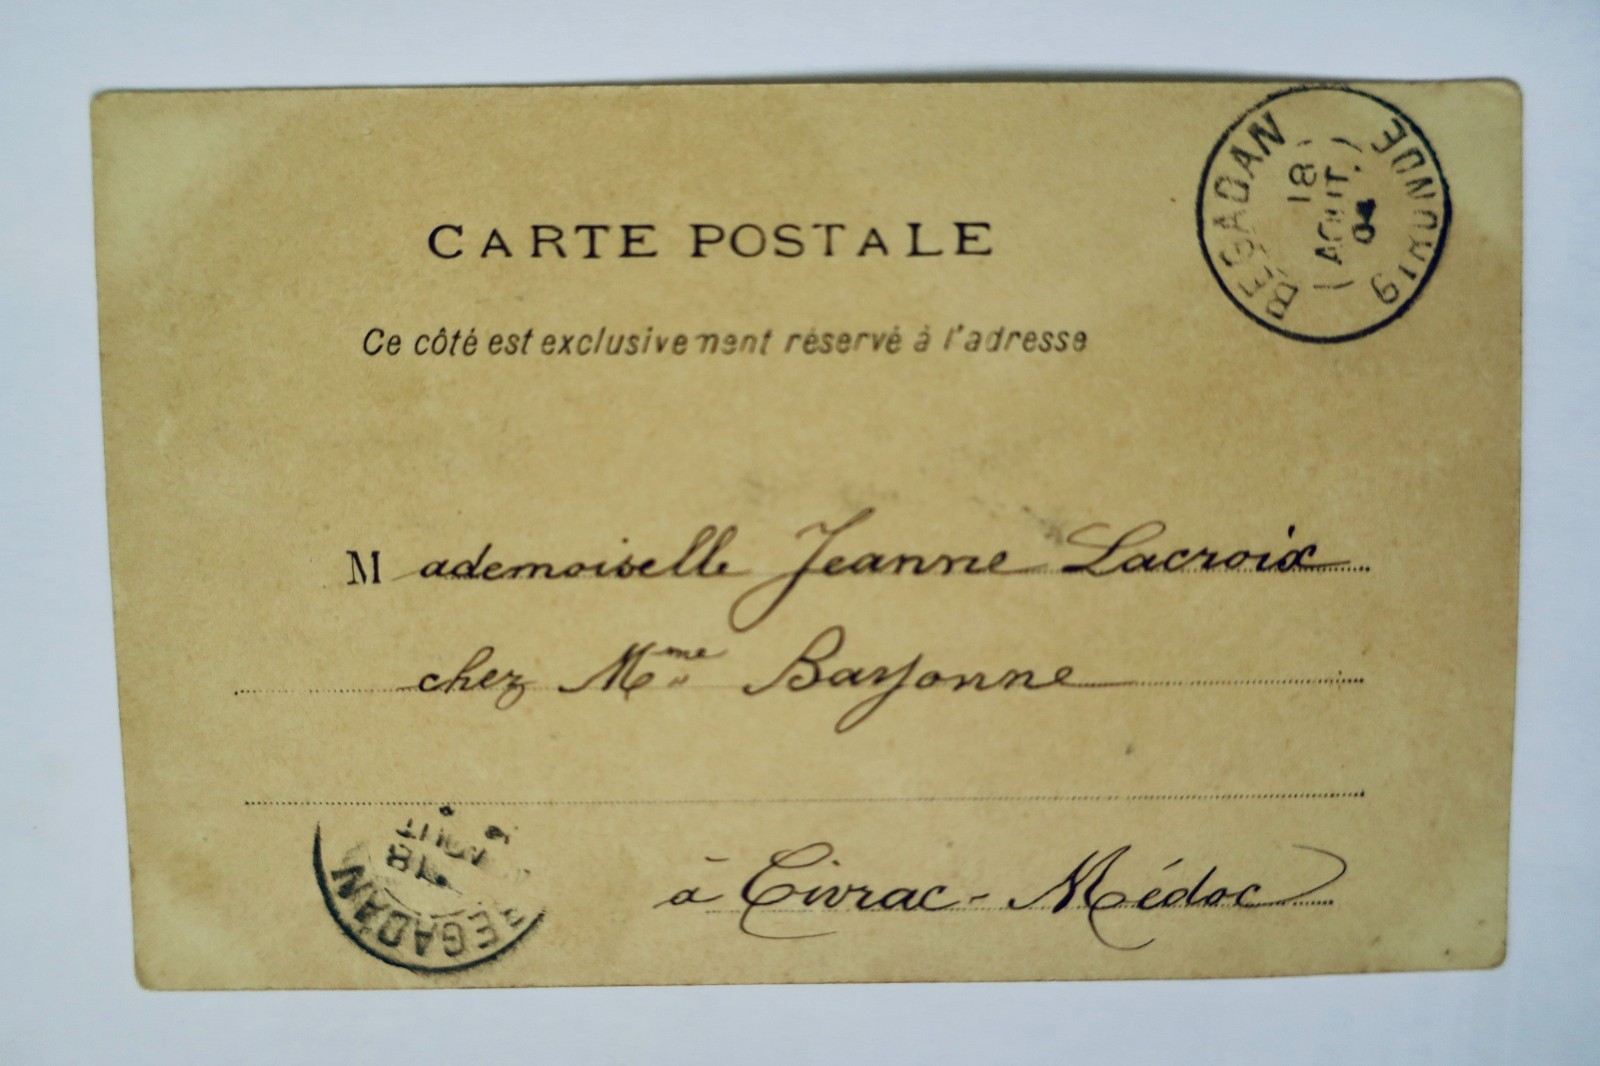 BEGADAN
GIRONDE
18
AOUT
04
CARTE POSTALE
Ce côté est exclusivement réservé à l'adresse
Mademoiselle Jeanne Lacroix
chez Mme Bayonne
à Civrac-Médoc
BEGADAN
18
AOUT